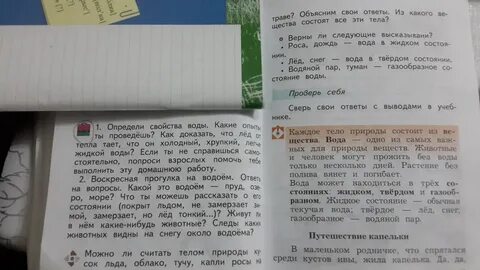 1. Определи свойства воды. Какие опыты
ты проведёшь? Как доказать, что лёд от
тепла тает, что он холодный, хрупкий, легче
жидкой воды? Если ты не справишься само-
стоятельно, попроси взрослых помочь тебе
выполнить эту домашнюю работу.
2. Воскресная прогулка на водоём. Ответь
на вопросы. Какой это водоём — пруд, озе-
ро, море? Что ты можешь рассказать о его
состоянии (покрыт льдом, не замерзает, не
замерзает, но лёд тонкий...)? Живут ли
в нём какие-нибудь животные? Следы каких
животных видны на снегу около водоёма?
Можно ли считать телом природы ку-
сок льда, облако, тучу, капли росы на
траве? Объясним свои ответы. Из какого ве-
щества состоят все эти тела?
в Верны ли следующие высказывания?
• Роса, дождь — вода в жидком состоя-
нии.
• Лёд, снег — вода в твёрдом состоянии.
• Водяной пар, туман — газообразное со-
стояние воды.
Проверь себя
Сверь свои ответы с выводами в учеб-
нике.
Каждое тело природы состоит из ве-
щества. Вода — одно из самых важ-
ных для природы веществ. Животные
и человек могут прожить без воды
только несколько дней. Растение без
полива вянет и погибает.
Вода может находиться в трёх со-
стояниях: жидком, твёрдом и газо-
образном. Жидкое состояние — обычная
текучая вода; твёрдое — лёд, снег;
газообразное — водяной пар.
Путешествие капельки
В маленьком родничке, что спрятался
среди кустов ивы, жила капелька. Да, да,